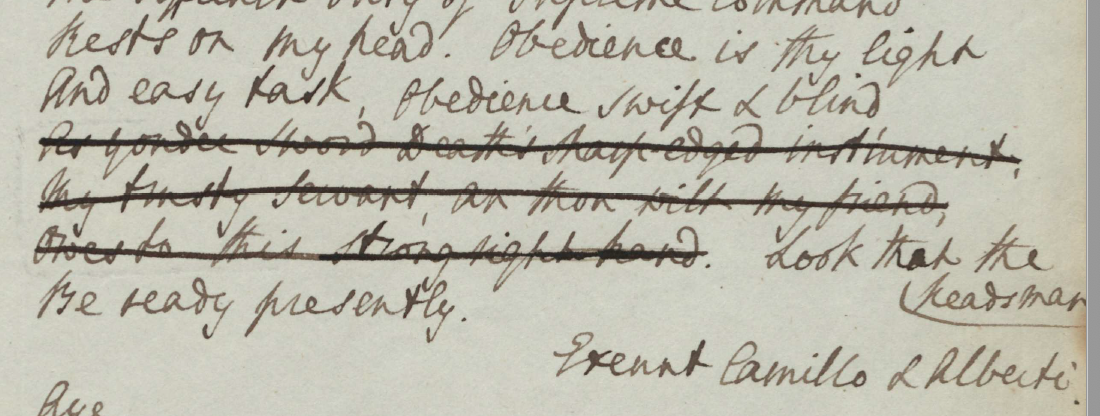 Rests on my head. Obedience is thy light
And easy task, Obedience swift & blind
As yonder sword Death's sharp-edged instrument,
My trusty servant, an thou wilt my friend,
Owes to this strong right hand. Look that the
Headsman
Be ready presently.
Exeunt Camillo & Alberti.
Aye